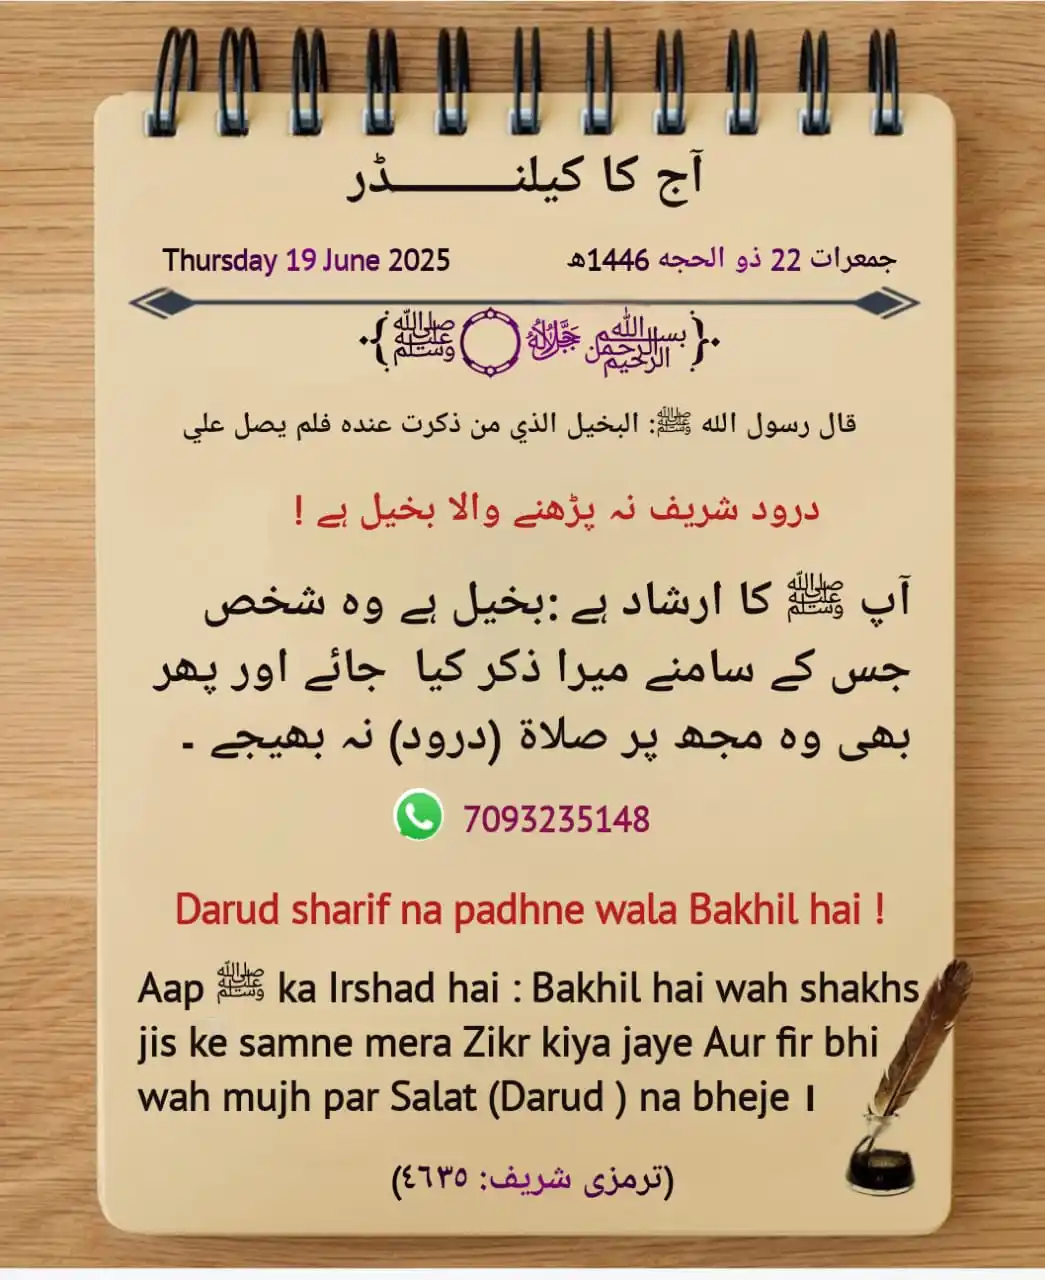 آج کا کیلنـــــــــڈر
Thursday 19 June 2025 جمعرات 22 ذو الحجه 1446ھ
﷽ ﷻ ﷺ
قال رسول الله ﷺ: البخيل الذي من ذكرت عنده فلم يصل علي
درود شریف نہ پڑھنے والا بخیل ہے !
آپ ﷺ کا ارشاد ہے :بخیل ہے وہ شخص
جس کے سامنے میرا ذکر کیا جائے اور پھر
بھی وہ مجھ پر صلاۃ (درود) نہ بھیجے ۔
7093235148
Darud sharif na padhne wala Bakhil hai !
Aap ﷺ ka Irshad hai : Bakhil hai wah shakhs
jis ke samne mera Zikr kiya jaye Aur fir bhi
wah mujh par Salat (Darud ) na bheje ।
(ترمزی شریف: ٤٦٣٥)